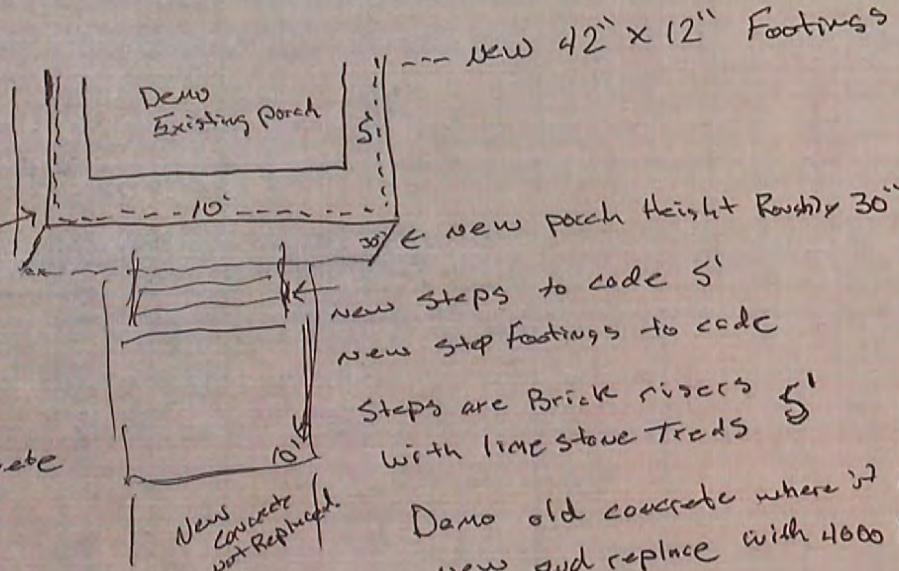 --- New 42" x 12" Footings
Demo
Existing porch
5'
10'
30"
← New porch Height Roughly 30"
New Steps to code 5'
New Step Footings to code
Steps are Brick risers 5'
with lime stone Treds
10'
New
Concrete
not Replaced
Demo old concrete where it
new and replace with 4000